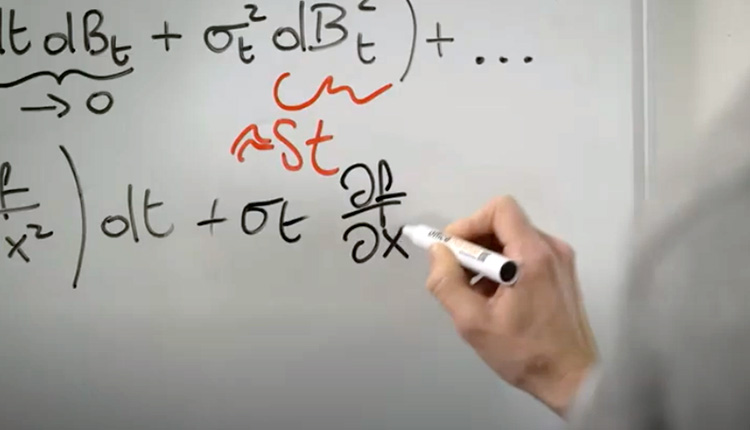 dt dB_t + σ_t^2 dB_t^2 ) + ...
→ 0
≈ δt
∂x^2 ) dt + σ_t ∂f/∂x